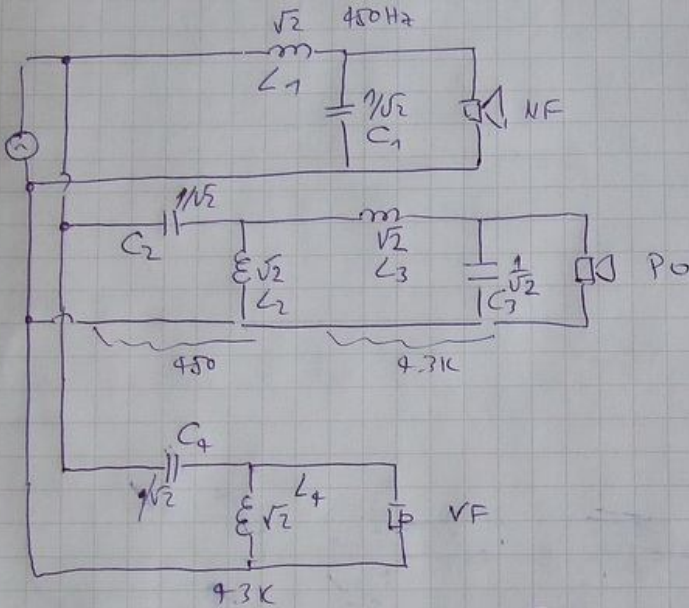 √2 450Hz
L1
1/√2
C1
NF
1/√2
C2
√2
L2
√2
L3
1/√2
C3
PO
450
4.3K
C4
1/√2
√2
L4
VF
4.3K